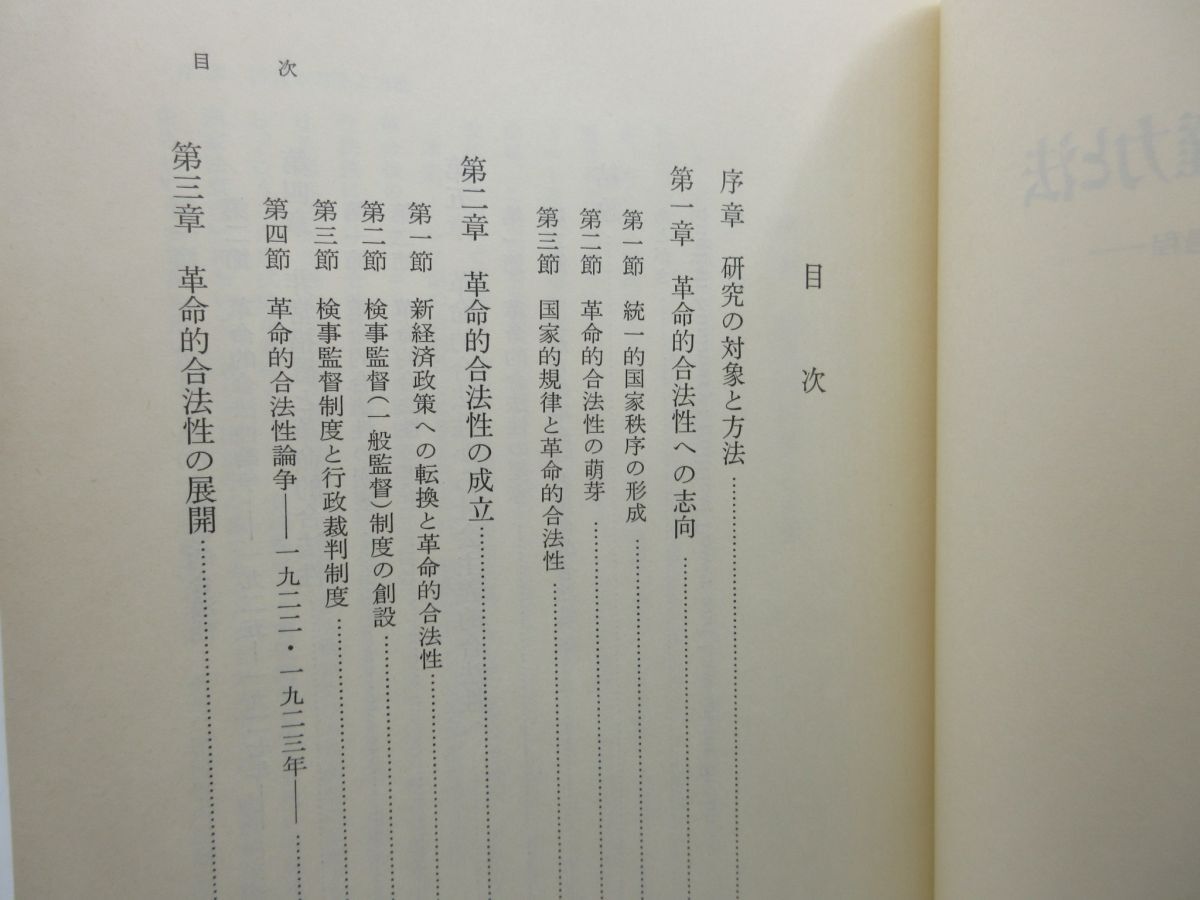 目次
序章 研究の対象と方法
第一章 革命的合法性への志向
第一節 統一的国家秩序の形成
第二節 革命的合法性の萌芽
第三節 国家的規律と革命的合法性
第二章 革命的合法性の成立
第一節 新経済政策への転換と革命的合法性
第二節 検事監督(一般監督)制度の創設
第三節 検事監督制度と行政裁判制度
第四節 革命的合法性論争——一九二二・一九二三年——
第三章 革命的合法性の展開
目次
力と法